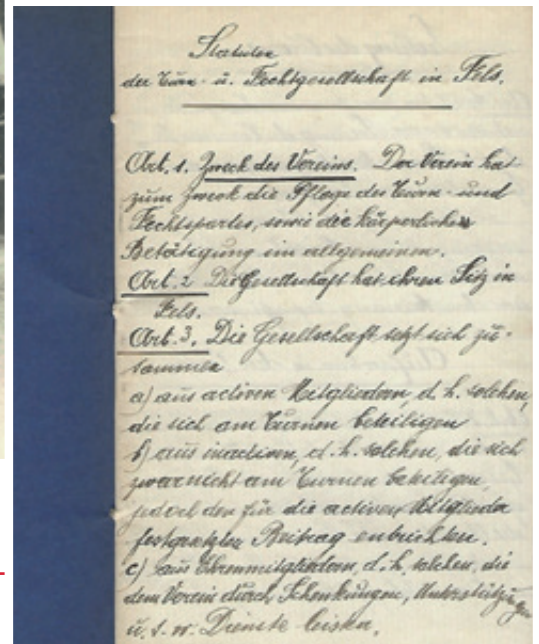 Statuten
der Turn- u. Fechtgesellschaft in Fels.
Art. 1. Zweck des Vereins. Der Verein hat
zum Zweck die Pflege des Turn- und
Fechtsportes, sowie der körperlichen
Betätigung im allgemeinen.
Art. 2 Die Gesellschaft hat ihren Sitz in
Fels.
Art. 3. Die Gesellschaft setzt sich zu-
sammen
a) aus activen Mitgliedern, d. h. solchen,
die sich am Turnen beteiligen
b) aus inactiven, d. h. solchen, die sich
zwar nicht am Turnen beteiligen,
jedoch den für die activen Mitglieder
festgesetzten Beitrag entrichten.
c) aus Ehrenmitgliedern, d. h. solchen, die
dem Verein durch Schenkungen, Unterstützungen
u. s. w. Dienste leisten.